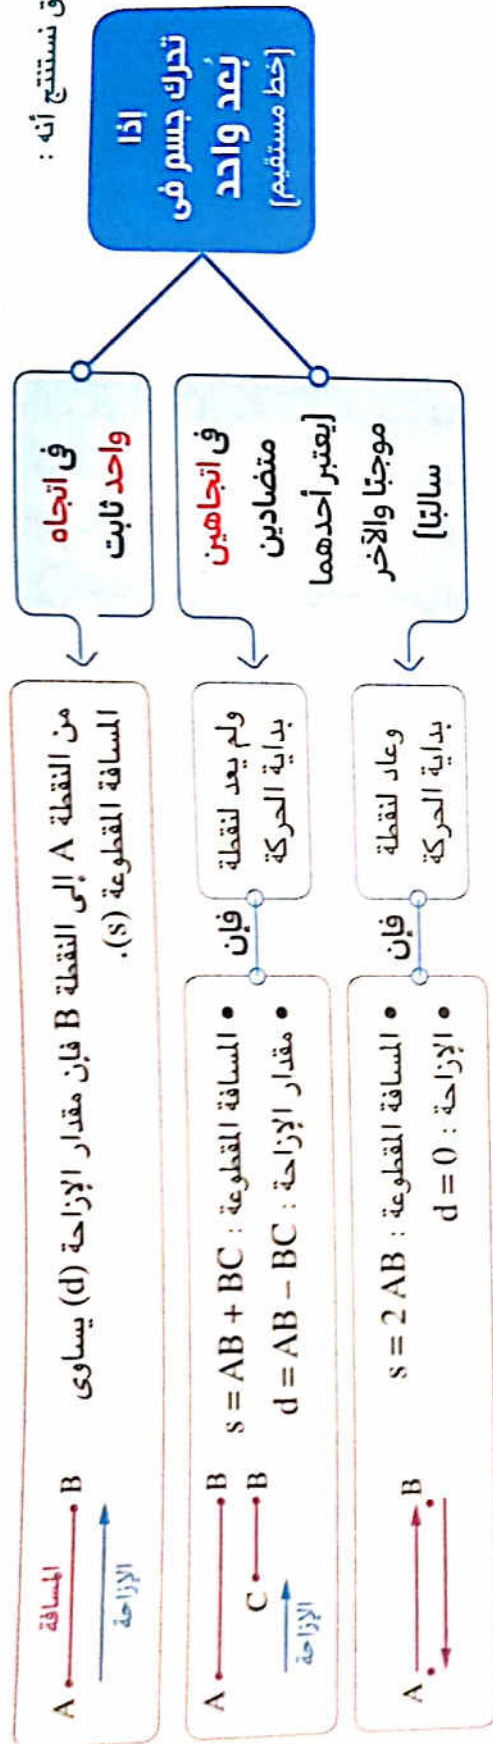 ق نستنتج أنه :
إذا
تحرك جسم فى
بُعد واحد
[خط مستقيم]
فى اتجاه
واحد ثابت
من النقطة A إلى النقطة B فإن مقدار الإزاحة (d) يساوى
المسافة المقطوعة (s).
المسافة
A B
الإزاحة
فى اتجاهين
متضادين
[يعتبر أحدهما
موجبًا والآخر
سالبًا]
ولم يعد لنقطة
بداية الحركة
فإن
• المسافة المقطوعة : s = AB + BC
• مقدار الإزاحة : d = AB − BC
A B
C B
الإزاحة
وعاد لنقطة
بداية الحركة
فإن
• المسافة المقطوعة : s = 2 AB
• الإزاحة : d = 0
A B